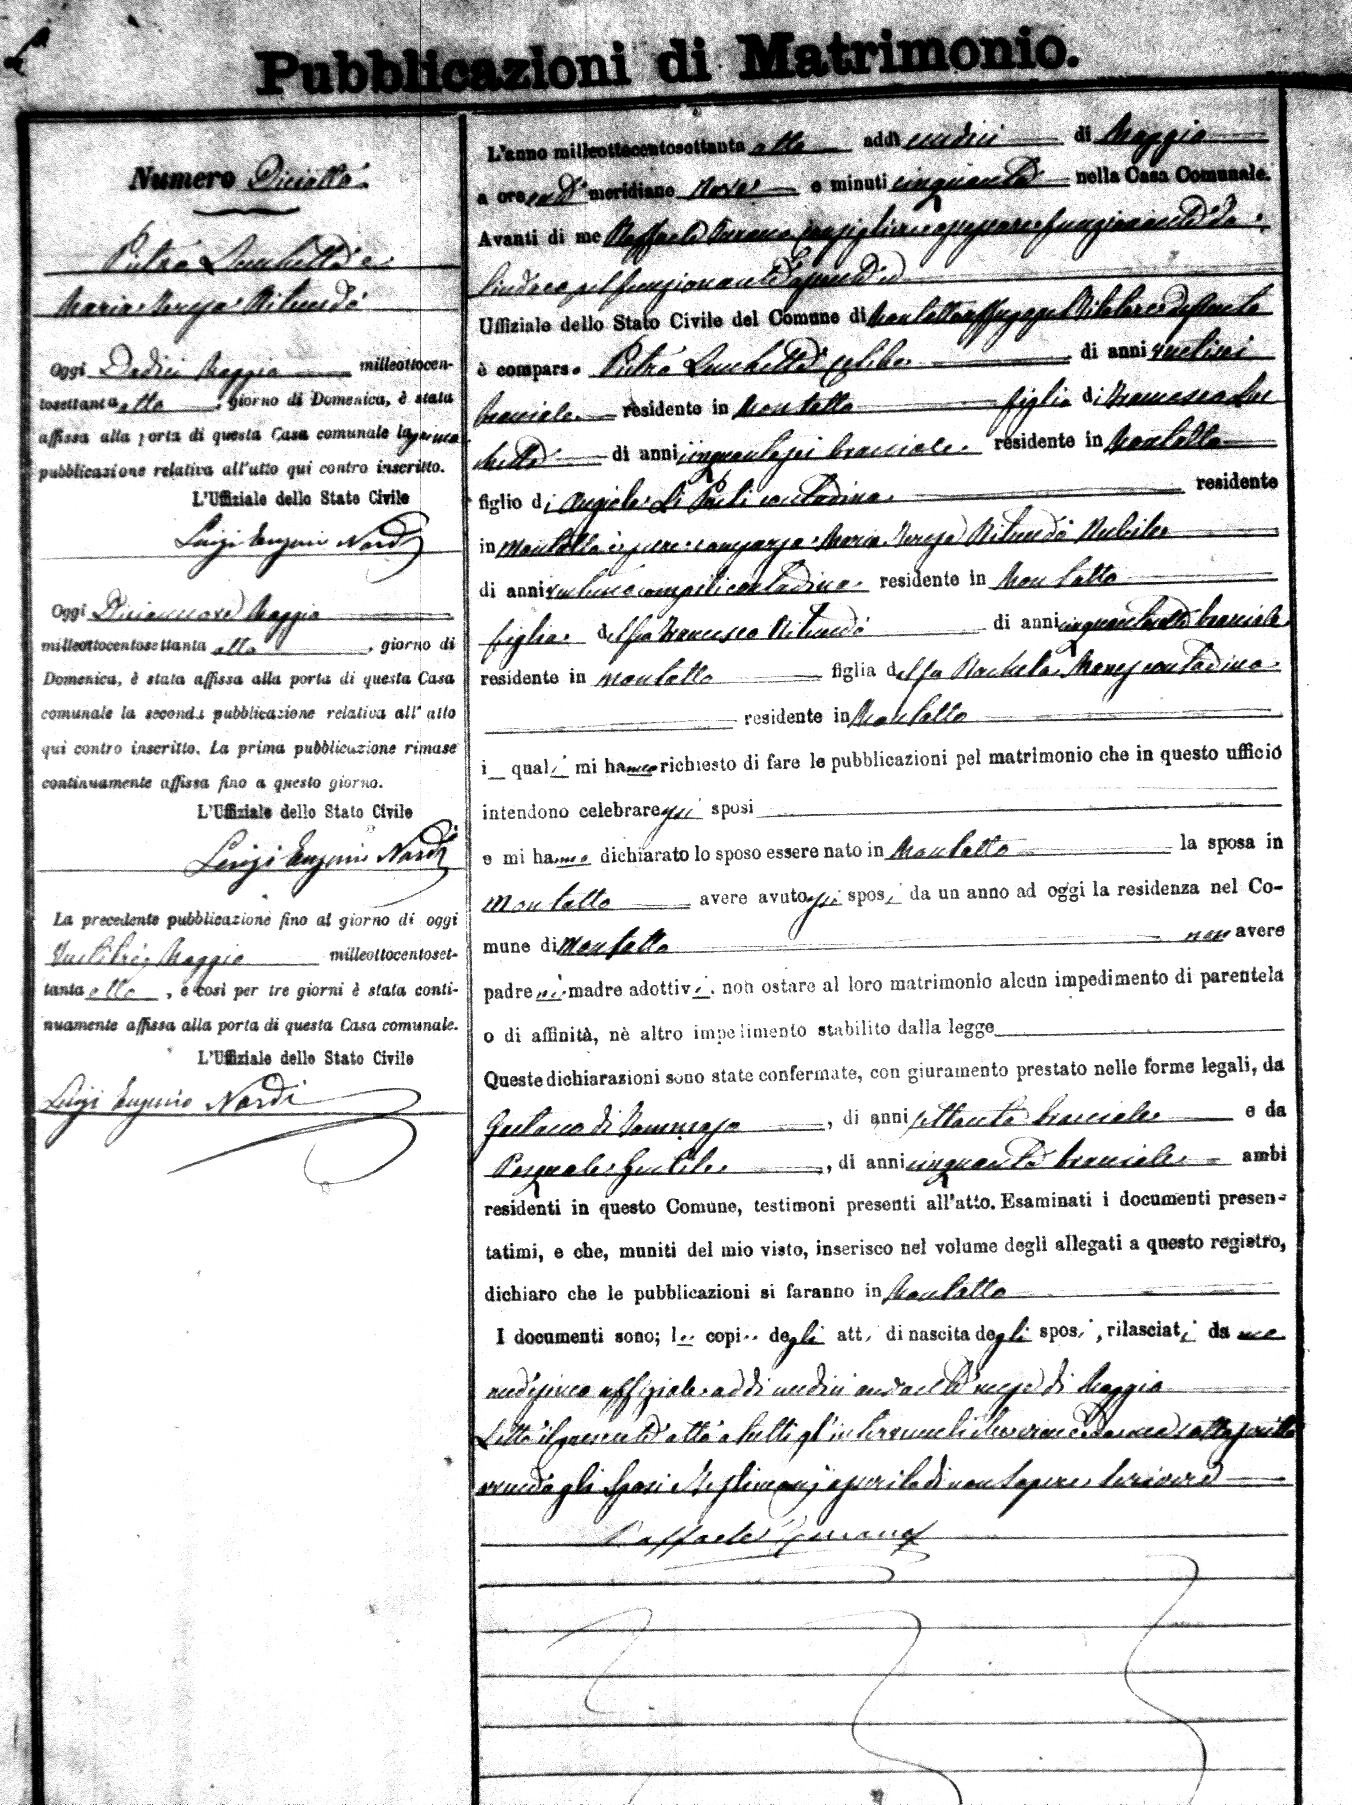 Pubblicazioni di Matrimonio.
Numero Diciotto
Pietro Lucchetta e
Maria Teresa Bilundò
Oggi Dodici Maggio milleottocen-
tosettanta otto, giorno di Domenica, è stata
affissa alla porta di questa Casa comunale la prima
pubblicazione relativa all'atto qui contro inscritto.
L'Uffiziale dello Stato Civile
Luigi Eugenio Nardi
Oggi Diciannove Maggio
milleottocentosettanta otto, giorno di
Domenica, è stata affissa alla porta di questa Casa
comunale la seconda pubblicazione relativa all'atto
qui contro inscritto. La prima pubblicazione rimase
continuamente affissa fino a questo giorno.
L'Uffiziale dello Stato Civile
Luigi Eugenio Nardi
La precedente pubblicazione fino al giorno di oggi
Ventitrè Maggio milleottocentoset-
tanta otto, e così per tre giorni è stata conti-
nuamente affissa alla porta di questa Casa comunale.
L'Uffiziale dello Stato Civile
Luigi Eugenio Nardi
L'anno milleottocentosettanta otto addì undici di Maggio
a ore anti meridiane nove e minuti cinquanta nella Casa Comunale.
Avanti di me Raffaele Consigliere funzionante da
Sindaco pel funzionante
Uffiziale dello Stato Civile del Comune di Montalto
è comparso Pietro celibe di anni
bracciale residente in Montalto figlio di Francesco
di anni cinquantasei bracciale residente in Montalto
figlio di Angiola Li Pauli contadina residente
in Montalto è pure comparsa Maria Teresa Nubile
di anni contadina residente in Montalto
figlia del fu Francesco di anni bracciale
residente in Montalto figlia della fu Rachela contadina
residente in Montalto
i quali mi hanno richiesto di fare le pubblicazioni pel matrimonio che in questo ufficio
intendono celebrare gli sposi
e mi hanno dichiarato lo sposo essere nato in Montalto la sposa in
Montalto avere avuto gli sposi da un anno ad oggi la residenza nel Co-
mune di Montalto non avere
padre nè madre adottivi. non ostare al loro matrimonio alcun impedimento di parentela
o di affinità, nè altro impedimento stabilito dalla legge
Queste dichiarazioni sono state confermate, con giuramento prestato nelle forme legali, da
Gaetano di Tommaso, di anni settanta bracciale e da
Pasquale Gentile, di anni cinquanta bracciale ambi
residenti in questo Comune, testimoni presenti all'atto. Esaminati i documenti presen-
tatimi, e che, muniti del mio visto, inserisco nel volume degli allegati a questo registro,
dichiaro che le pubblicazioni si faranno in Montalto
I documenti sono; le copie degli atti di nascita degli sposi, rilasciati da me
medesimo uffiziale addi undici andante mese di Maggio
Letto il presente atto a tutti gl'intervenuti
gli Sposi e Testimoni per non sapere scrivere
Raffaele